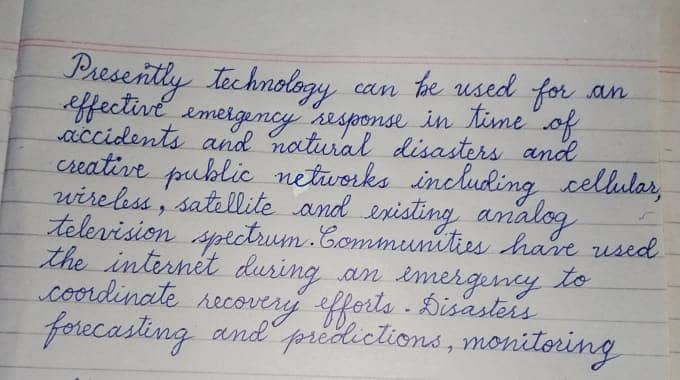 Presently technology can be used for an
effective emergency response in time of
accidents and natural disasters and
creative public networks including cellular,
wireless, satellite and existing analog
television spectrum. Communities have used
the internet during an emergency to
coordinate recovery efforts. Disasters
forecasting and predictions, monitoring